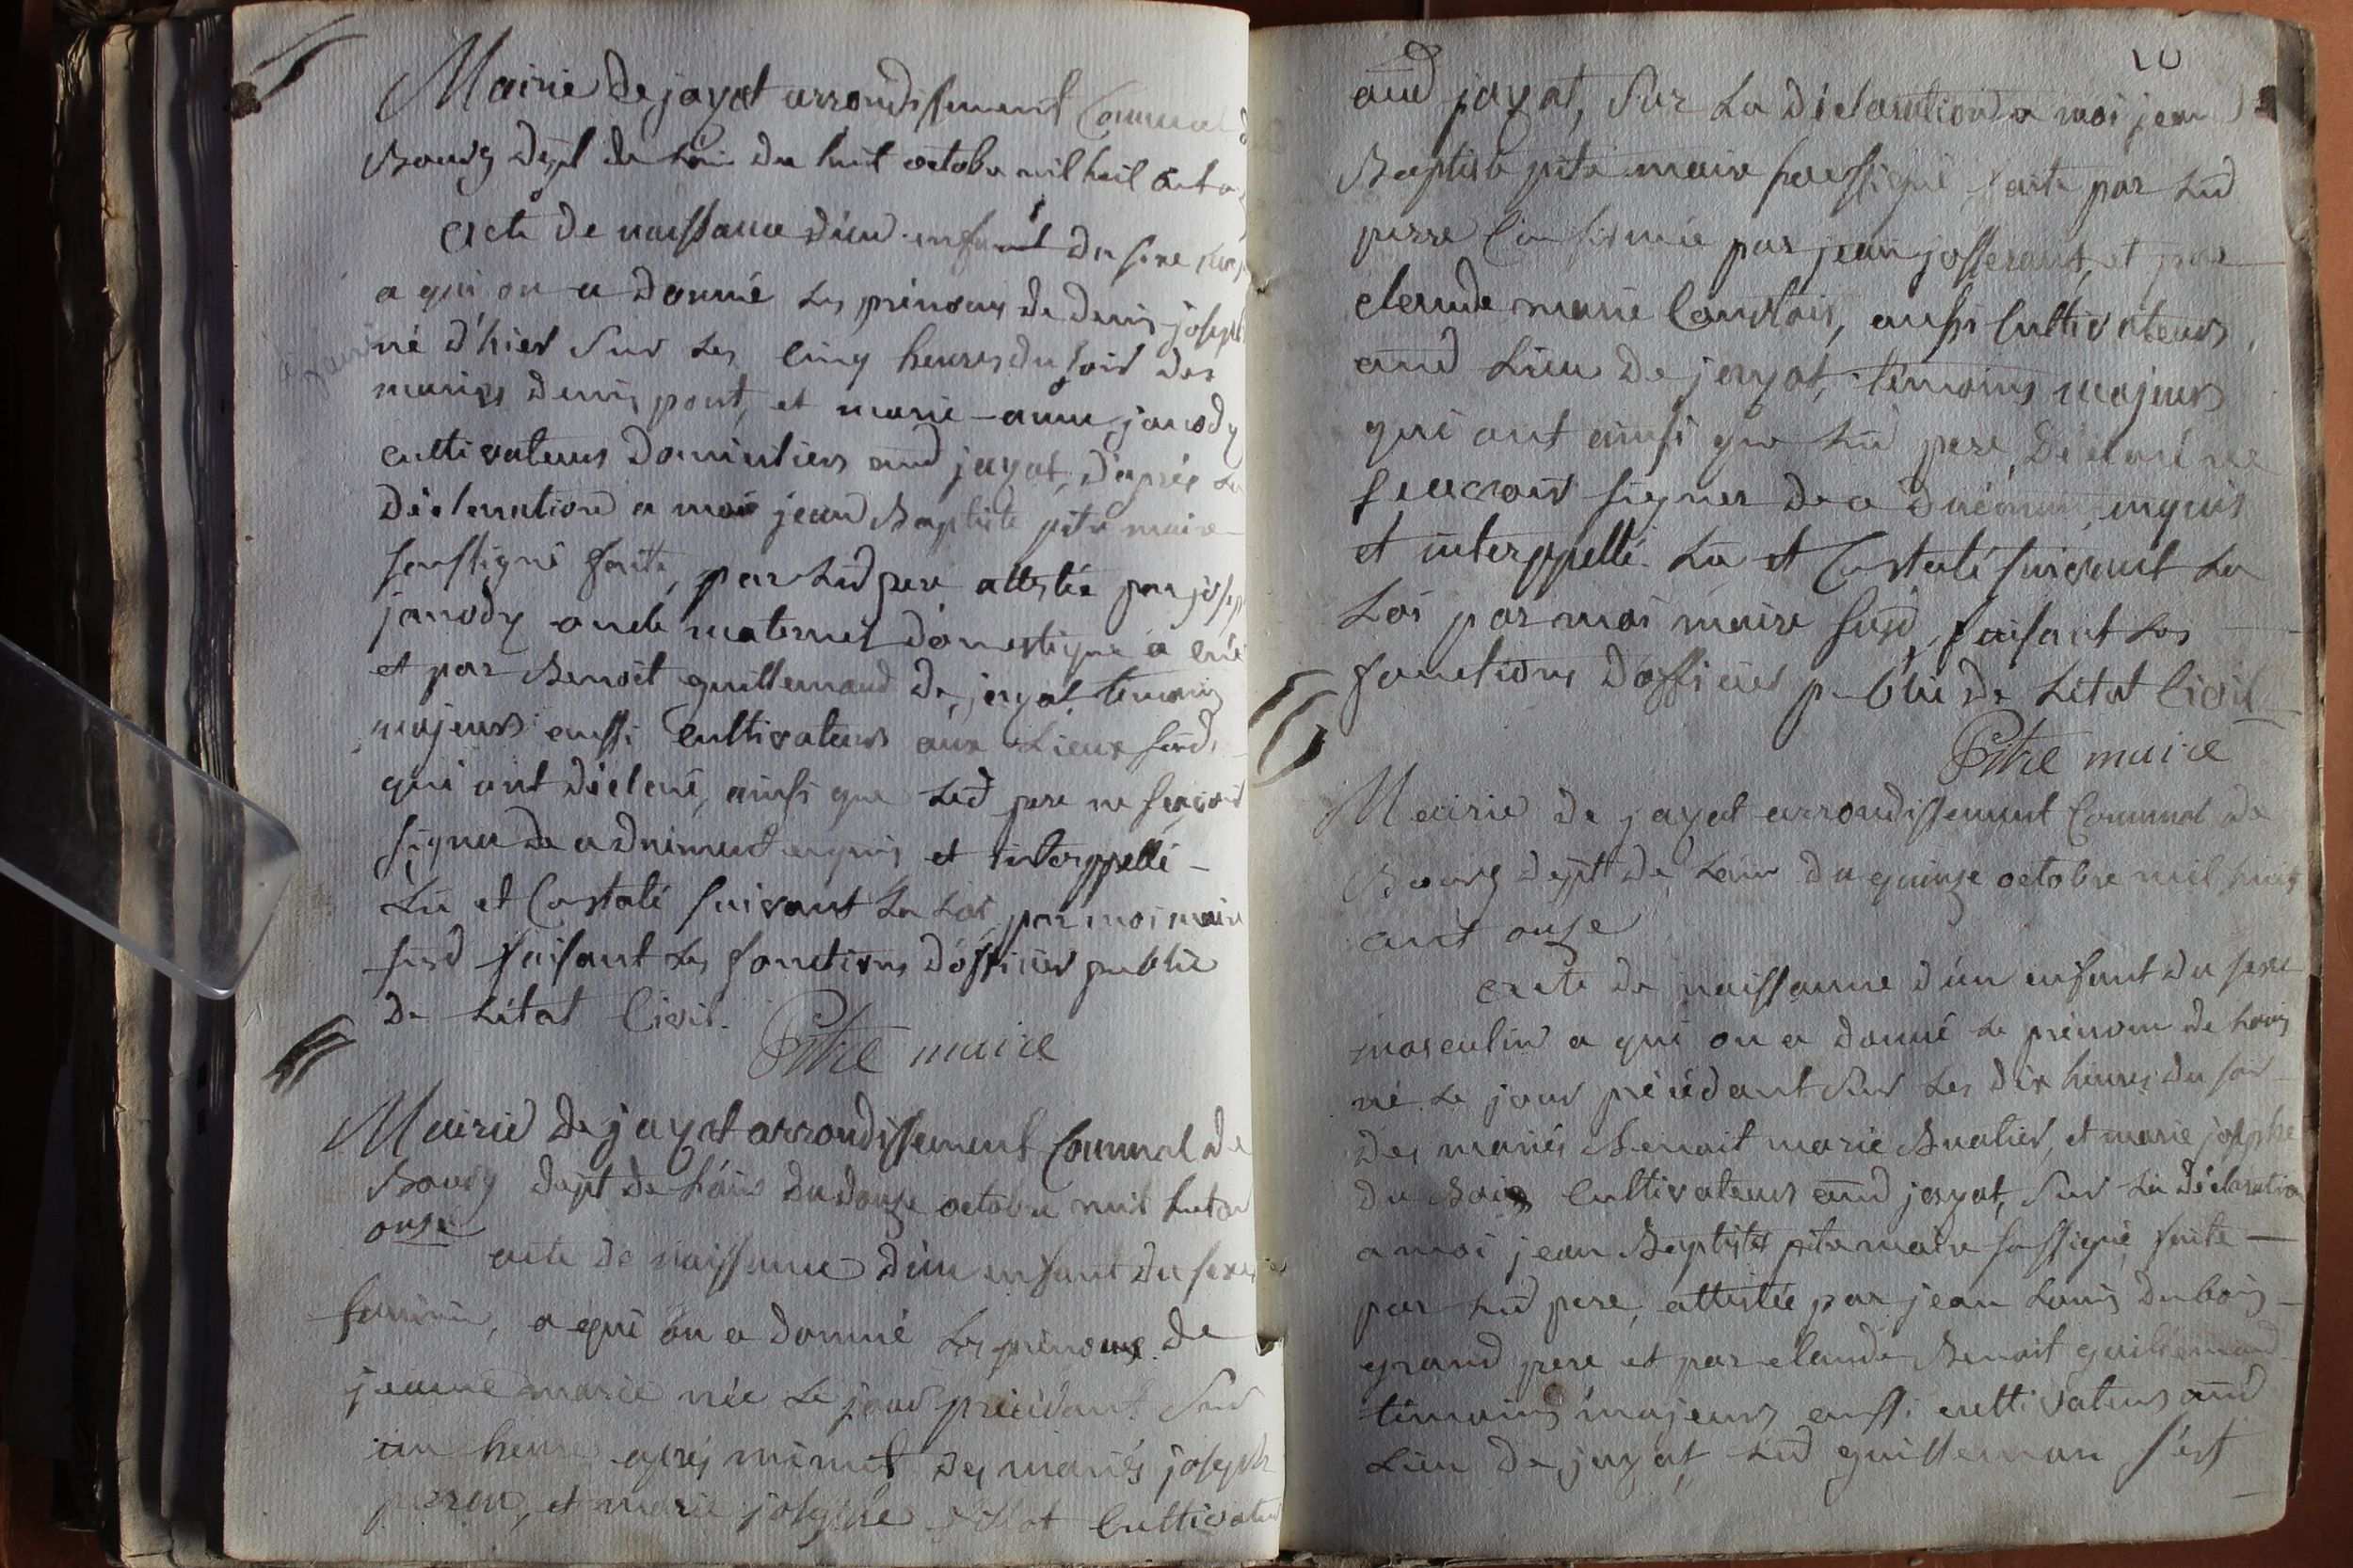 Mairie de jayat arrondissement Communal
Bourg dept de Lain du huit octobre mil huit cent
acte de naissance d'un enfant du sexe
a qui on a donné les prénoms de denis joseph
né d'hier sur les cinq heures du soir des
mariés denis pont, et marie-anne janody
cultivateurs domiciliers aud jayat, d'après la
déclaration a moi jean Baptiste pitre maire
soussigné faite, par Led pere attestée par joseph
janody oncle maternel domestique a
et par Benoit guillemaud de jayat temoins
majeurs aussi cultivateurs aux Lieux susd.
qui ont déclaré, ainsi que Led pere ne scavoir
signer de ce duement enquis et interppellé
Lu et Constaté suivant La Loi par moi maire
susd faisant les fonctions d'officier public
de Létat Civil.
Pitre maire
Mairie de jayat arrondissement Communal de
Bourg dept de Lain du douze octobre mil huit cent
onze
acte de naissance d'un enfant du sexe
feminin, a qui on a donné les prénoms de
jeanne marie née le jour précédant sur
un heure après minuit des mariés joseph
et marie josephe cultivateurs
10
aud jayat, sur la déclaration a moi jean
Baptiste pitre maire soussigné faite par Led
perre Confirmée par jean josserand, et par
claude marie aussi cultivateurs
aud Lieu de jayat, témoins majeurs
qui ont ainsi que Led pere, déclaré ne
scavoir signer de ce duement, enquis
et interppellé. Lu et Constaté suivant La
Loi par moi maire susd, faisant les
fonctions d'officier public de Létat Civil
Pitre maire
Mairie de jayat arrondissement Communal de
Bourg dept de Lain du quinze octobre mil huit
cent onze
acte de naissance d'un enfant du sexe
masculin a qui on a donné le prénom de Louis
né le jour précédant sur les dix heures du soir
des mariés Benoit marie Buatier, et marie josephe
du Bois cultivateurs aud jayat, sur la déclaration
a moi jean Baptiste pitre maire soussigné faite
par Led pere, attestée par jean Louis dubois
grand pere et par claude Benoit guillemaud
témoins majeurs aussi cultivateurs aud
Lieu de jayat Led guilleman s'est